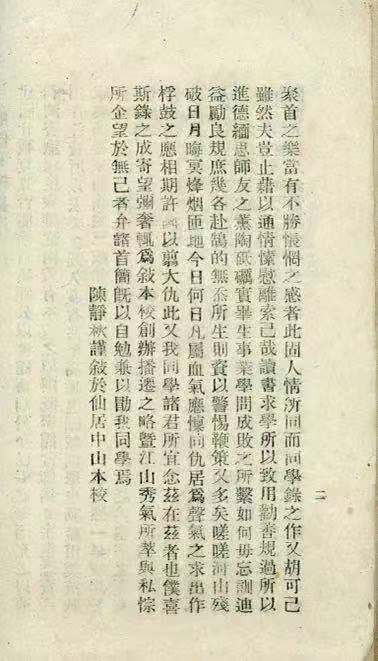 聚首之樂當有不勝悵惘之感者此固人情所同而同學錄之作又胡可已
雖然夫豈止藉以通情愫慰離索已哉讀書求學所以致用勸善規過所以
進德緬思師友之薰陶砥礪實畢生事業學問成敗之所繫如何毋忘訓迪
益勵良規庶幾各赴鵠的無忝所生則資以警惕鞭策又多矣嗟嗟河山殘
破日月晦冥烽烟匝地今日何日凡屬血氣應懍同仇居爲聲氣之求出作
桴鼓之應相期許國以翦大仇此又我同學諸君所宜念茲在茲者也僕喜
斯錄之成寄望彌奢輒爲敍本校創辦播遷之略暨江山秀氣所萃與私悰
所企望於無已者弁諸首簡旣以自勉兼以勖我同學焉
陳靜秋謹敍於仙居中山本校
二